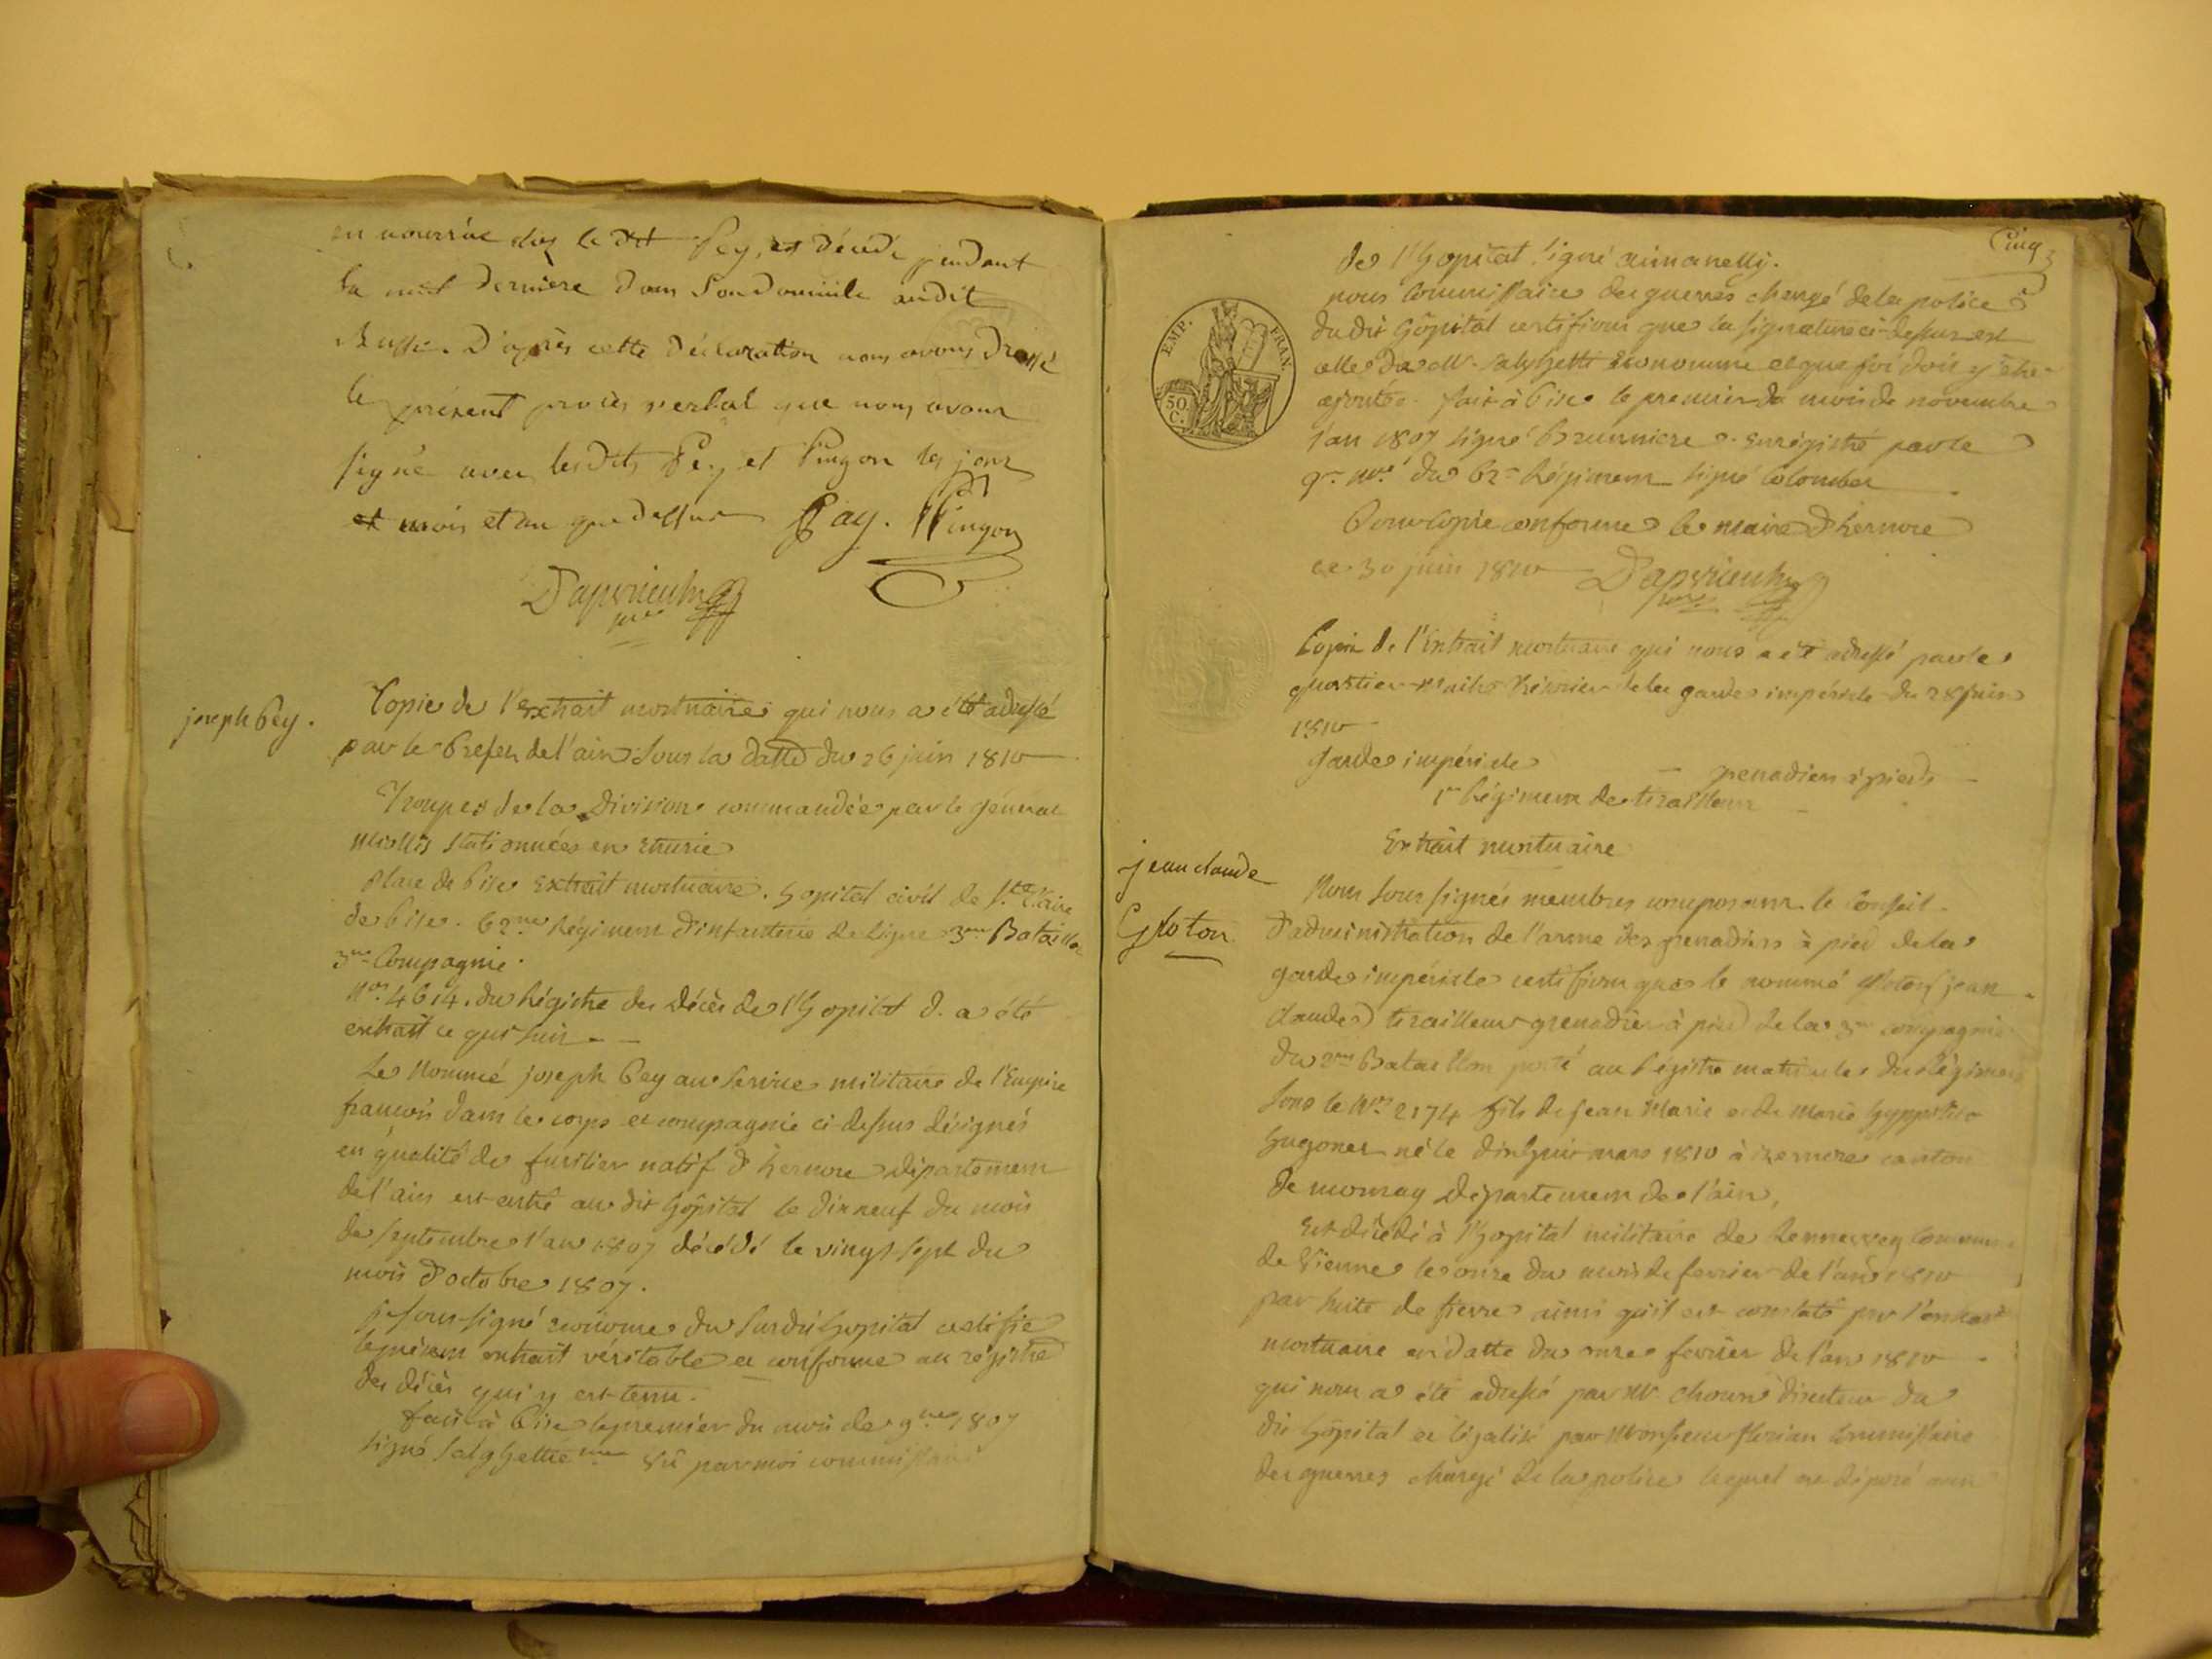 en nourrice chez le dit Pey, est décédé pendant
la nuit derniere dans son domicile audit
Bussi. D'après cette déclaration nous avons dressé
le présent procès verbal que nous avons
signé avec lesdits Pey et Pingon les jour
et mois et an que dessus Pay. Pingon
Dapvrieulx
joseph Pey.
Copie de l'extrait mortuaire qui nous a été adressé
par le Prefet de l'ain sous la datte du 26 juin 1810
Troupes de la Division commandée par le général
miollis stationnées en etrurie
Place de Pise extrait mortuaire. hopital civil de Ste Claire
de Pise. 62me Régiment d'infanterie de ligne 3me Bataillon
3me Compagnie.
Nos. 4614. du Régistre des Décès de l'hopital d. a été
extrait ce qui suit
Le Nommé joseph Pey au service militaire de l'Empire
francois dans le corps et compagnie ci-dessus désignés
en qualité de fusilier natif d'hernore département
de l'ain est entré au dit hôpital le dix neuf du mois
de septembre l'an 1807 décédé le vingt sept du
mois d'octobre 1807.
je sous-signé econome du susdit hopital certifie
le présent extrait véritable et conforme au régistre
des décès qui y est tenu.
fait à Pise le premier du mois de 9bre 1807
signé Salghettie Vû par moi commissaire
Cinq
de l'hopital signé
nous Commissaire des guerres chargé de la police
du dit hôpital certifions que la signature ci-dessus est
celle de Mr. Salghetti économe et que foi doit y être
ajoutée. fait à Pise le premier du mois de novembre
l'an 1807 signé Brunniere. Enrégistré par le
qr. Mre. du 62e Régiment signé Colomber
Pour copie conforme le maire d'hernore
ce 30 juin 1810 Dapvrieulx
EMP. FRAN.
50 C.
Copie de l'Extrait mortuaire qui nous a été adressé par le
quartier-Maitre trésorier de la garde impériale du 28 juin
1810
Garde impériale grenadiers à pieds
1er Régiment de tirailleur
Extrait mortuaire
jean claude
Gloton
Nous sous signés membres composant le Conseil
d'administration de l'arme des grenadiers à pied de la
garde impériale certifions que le nommé Gloton jean
claude tirailleur grenadier à pied de la 3e compagnie
du 2me Bataillon porté au Régistre matricules du Régiment
sous le No. 2174 fils de jean Marie et de Marie hyppolite
hugonet né le dix huit mars 1810 à izernore canton
de mornay Département de l'ain,
Est décédé à l'hopital militaire de Rennweg Commune
de Vienne le onze du mois de fevrier de l'an 1810
par suite de fievre ainsi qu'il est constaté par l'extrait
mortuaire en datte du onze fevrier de l'an 1810
qui nous a été adressé par Mr. directeur du
dit hôpital et légalisé par Monsieur florian Commissaire
des guerres chargé de la police lequel est déposé aux